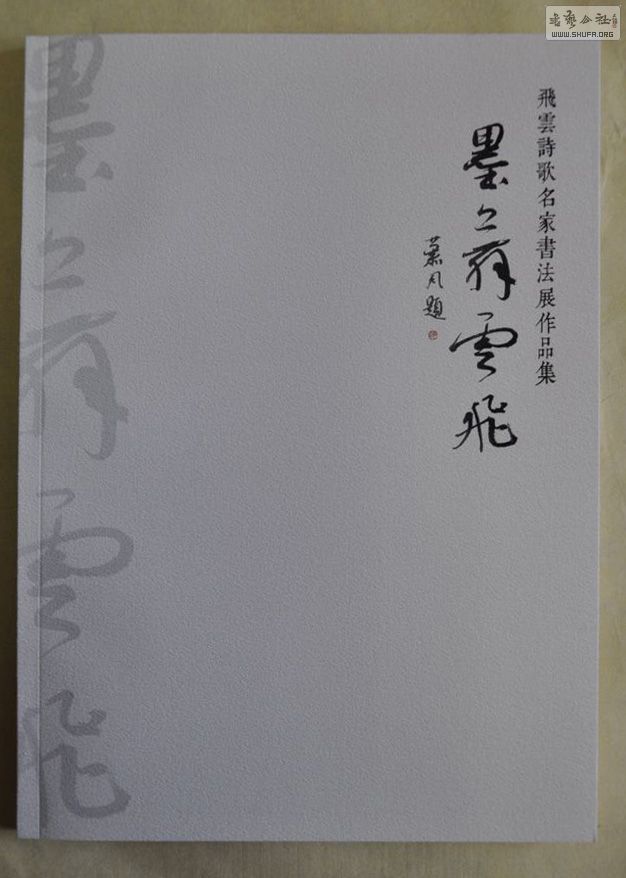 書藝公社
WWW.SHUFA.ORG
飛雲詩歌名家書法展作品集
墨舞雲飛
題
墨舞雲飛